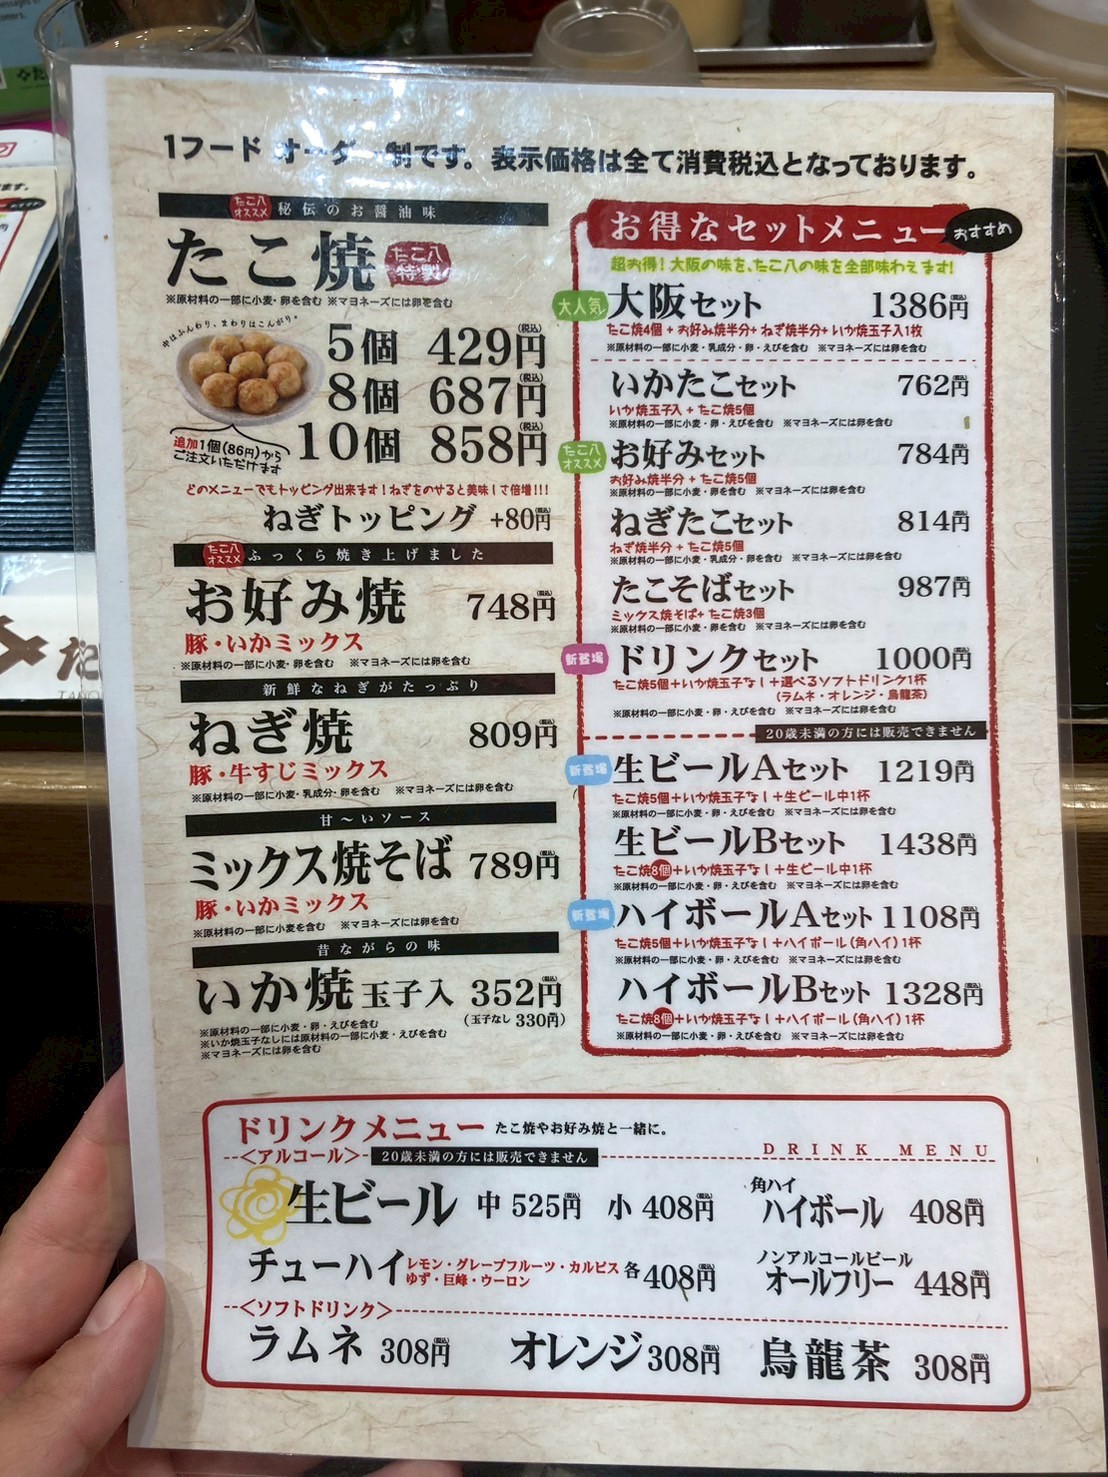 1フード オーダー制です。表示価格は全て消費税込となっております。
たこ八オススメ 秘伝のお醤油味
たこ焼 たこ八特製
※原材料の一部に小麦・卵を含む ※マヨネーズには卵を含む
中はふんわり、まわりはこんがり
5個 429円(税込)
8個 687円(税込)
10個 858円(税込)
追加1個(86円)から
ご注文いただけます
どのメニューでもトッピング出来ます!ねぎをのせると美味しさ倍増!!!
ねぎトッピング +80円(税込)
たこ八オススメ ふっくら焼き上げました
お好み焼 748円(税込)
豚・いかミックス
※原材料の一部に小麦・卵を含む ※マヨネーズには卵を含む
新鮮なねぎがたっぷり
ねぎ焼 809円(税込)
豚・牛すじミックス
※原材料の一部に小麦・乳成分・卵を含む ※マヨネーズには卵を含む
甘〜いソース
ミックス焼そば 789円(税込)
豚・いかミックス
※原材料の一部に小麦を含む ※マヨネーズには卵を含む
昔ながらの味
いか焼 玉子入 352円(税込)
(玉子なし 330円)
※原材料の一部に小麦・卵・えびを含む
※いか焼玉子なしには原材料の一部に小麦・えびを含む
※マヨネーズには卵を含む
お得なセットメニュー おすすめ
超お得!大阪の味を、たこ八の味を全部味わえます!
大人気 大阪セット 1386円(税込)
たこ焼4個 + お好み焼半分 + ねぎ焼半分 + いか焼玉子入1枚
※原材料の一部に小麦・乳成分・卵・えびを含む ※マヨネーズには卵を含む
いかたこセット 762円(税込)
いか焼玉子入 + たこ焼5個
※原材料の一部に小麦・卵・えびを含む ※マヨネーズには卵を含む
たこ八オススメ お好みセット 784円(税込)
お好み焼半分 + たこ焼5個
※原材料の一部に小麦・卵を含む ※マヨネーズには卵を含む
ねぎたこセット 814円(税込)
ねぎ焼半分 + たこ焼5個
※原材料の一部に小麦・乳成分・卵を含む ※マヨネーズには卵を含む
たこそばセット 987円(税込)
ミックス焼そば + たこ焼3個
※原材料の一部に小麦・卵を含む ※マヨネーズには卵を含む
新登場 ドリンクセット 1000円(税込)
たこ焼5個+いか焼玉子なし+選べるソフトドリンク1杯
(ラムネ・オレンジ・烏龍茶)
※原材料の一部に小麦・卵・えびを含む ※マヨネーズには卵を含む
20歳未満の方には販売できません
新登場 生ビールAセット 1219円(税込)
たこ焼5個+いか焼玉子なし+生ビール中1杯
※原材料の一部に小麦・卵・えびを含む ※マヨネーズには卵を含む
生ビールBセット 1438円(税込)
たこ焼8個+いか焼玉子なし+生ビール中1杯
※原材料の一部に小麦・卵・えびを含む ※マヨネーズには卵を含む
新登場 ハイボールAセット 1108円(税込)
たこ焼5個+いか焼玉子なし+ハイボール(角ハイ)1杯
※原材料の一部に小麦・卵・えびを含む ※マヨネーズには卵を含む
ハイボールBセット 1328円(税込)
たこ焼8個+いか焼玉子なし+ハイボール(角ハイ)1杯
※原材料の一部に小麦・卵・えびを含む ※マヨネーズには卵を含む
ドリンクメニュー たこ焼やお好み焼と一緒に。
DRINK MENU
<アルコール> 20歳未満の方には販売できません
生ビール 中 525円(税込) 小 408円(税込)
角ハイ
ハイボール 408円(税込)
チューハイ レモン・グレープフルーツ・カルピス
ゆず・巨峰・ウーロン 各408円(税込)
ノンアルコールビール
オールフリー 448円(税込)
<ソフトドリンク>
ラムネ 308円(税込) オレンジ 308円(税込) 烏龍茶 308円(税込)